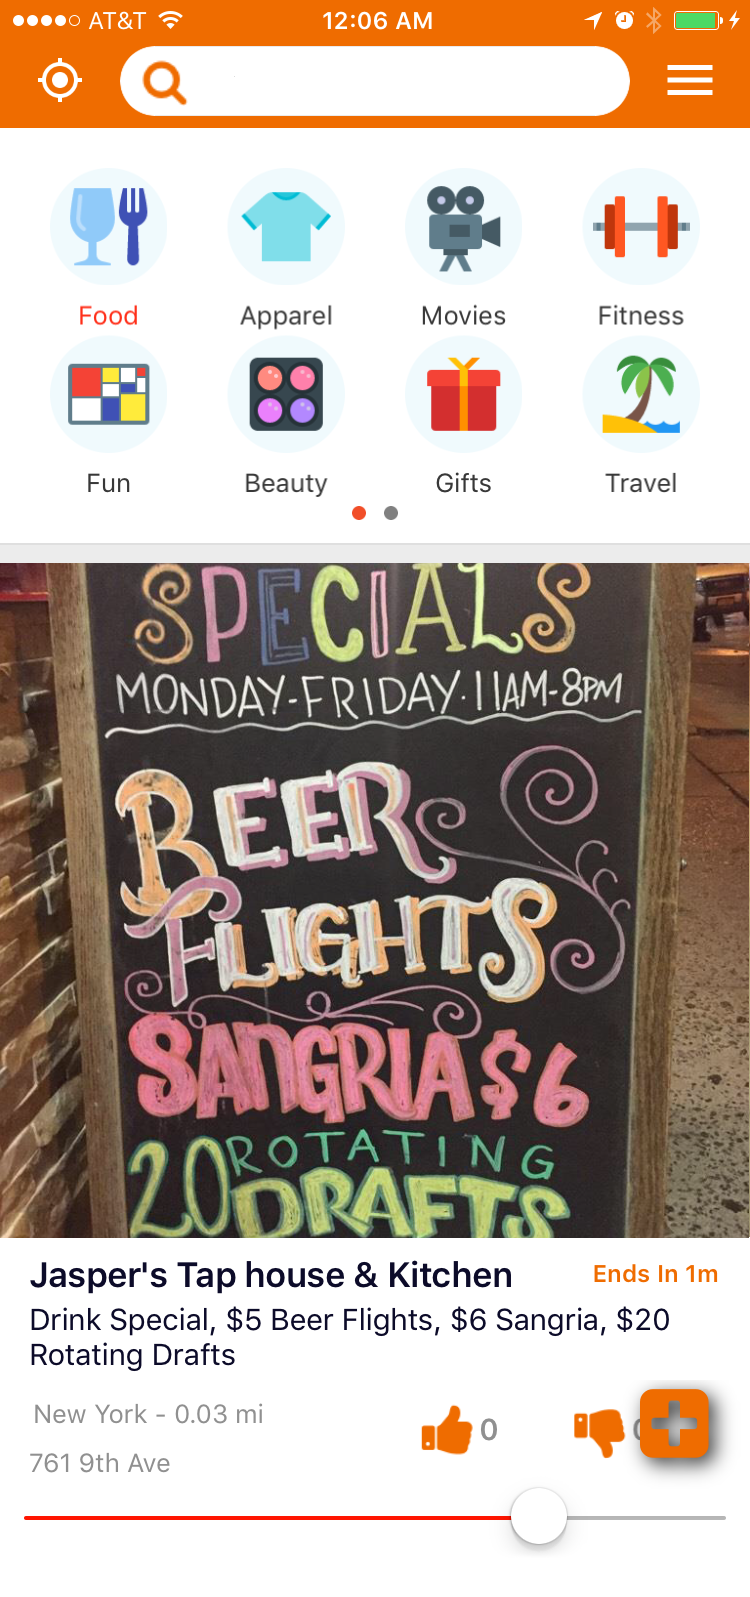 AT&T 12:06 AM
Food Apparel Movies Fitness
Fun Beauty Gifts Travel
SPECIALS
MONDAY-FRIDAY·11AM-8PM
BEER
FLIGHTS
SANGRIA $6
20 ROTATING
DRAFTS
Jasper's Tap house & Kitchen Ends In 1m
Drink Special, $5 Beer Flights, $6 Sangria, $20
Rotating Drafts
New York - 0.03 mi 0
761 9th Ave